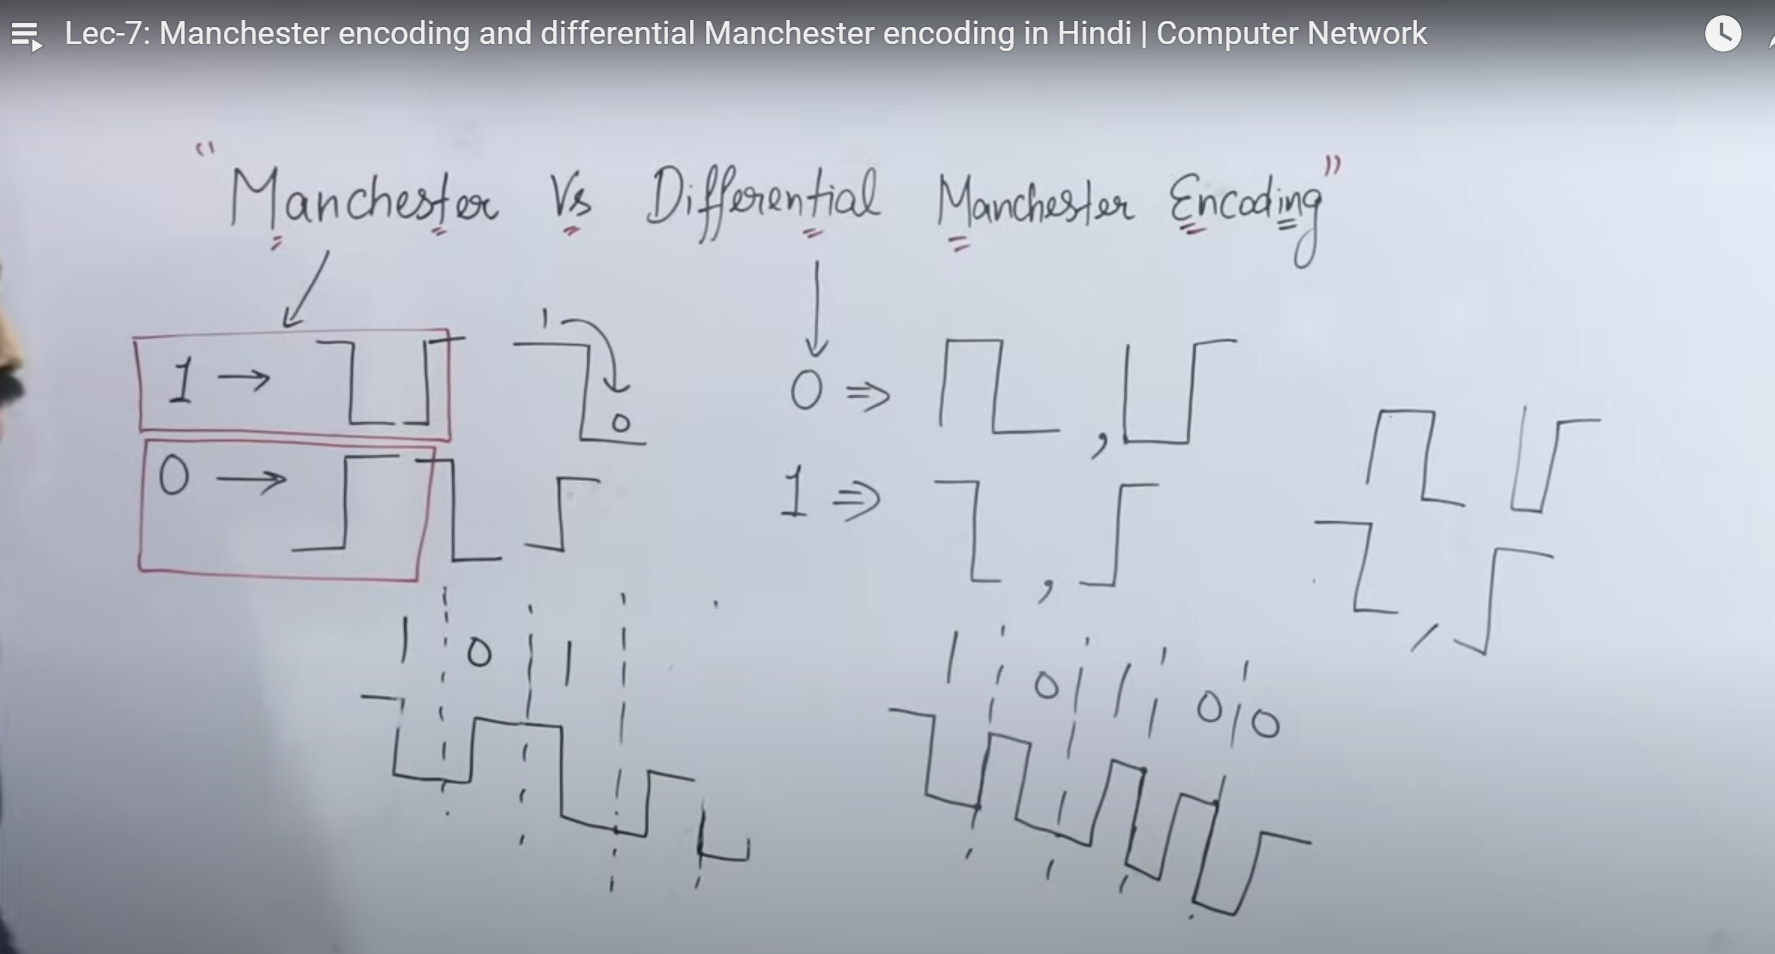 Lec-7: Manchester encoding and differential Manchester encoding in Hindi | Computer Network
"Manchester Vs Differential Manchester Encoding"
1 →
1
0
0 →
0 ⇒
,
1 ⇒
,
,
1 0 1
1 0 1 0 0